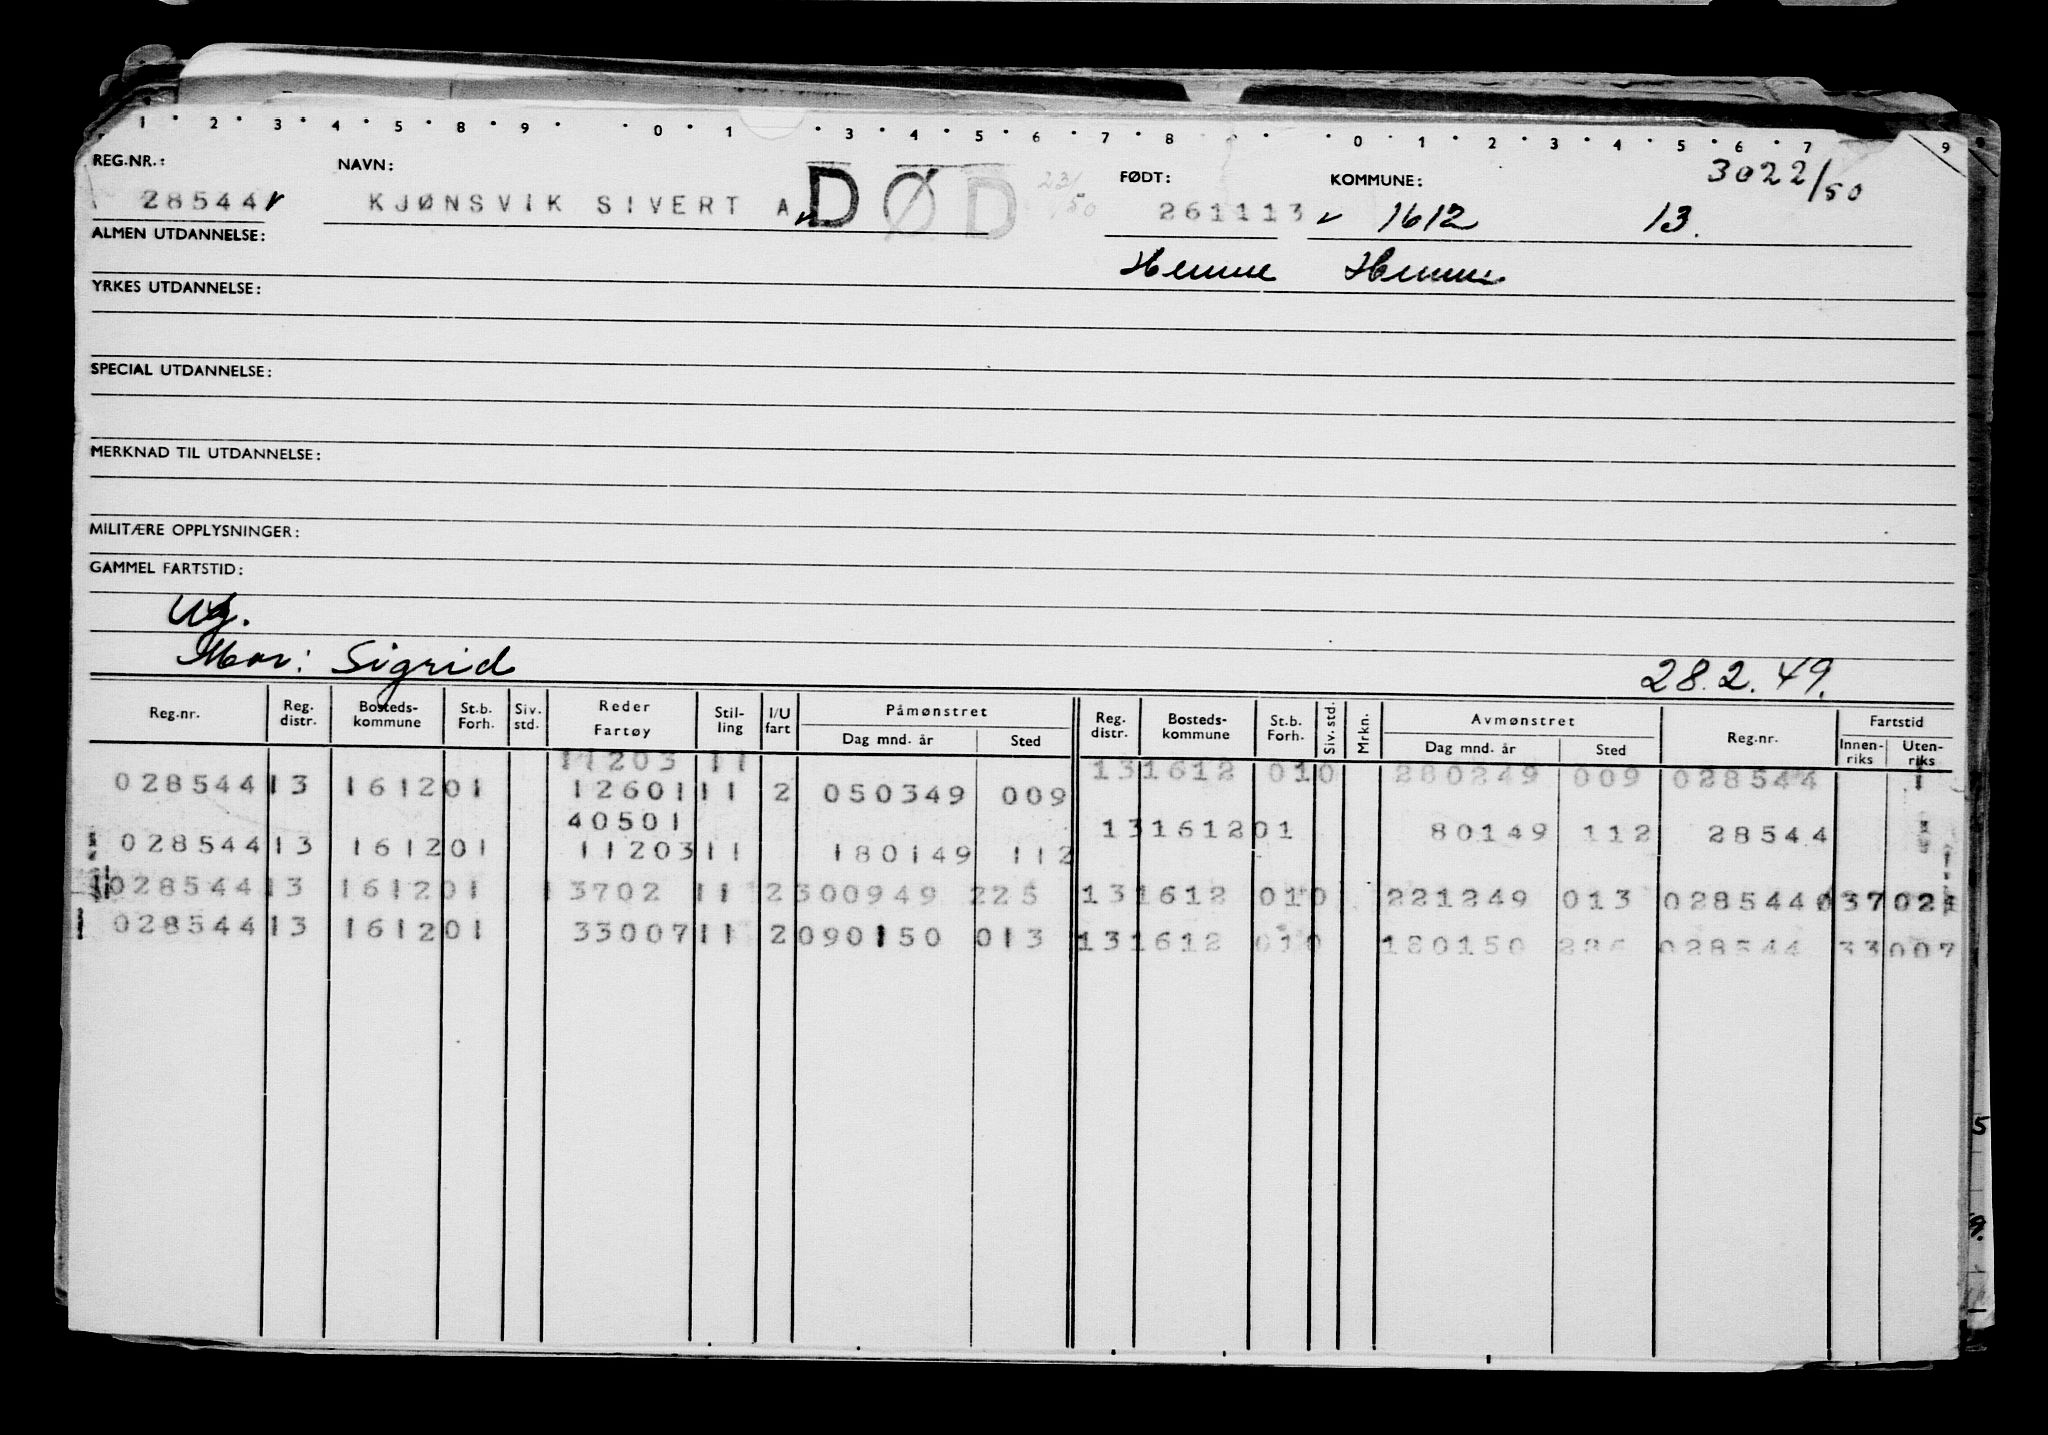 1 2 3 4 5 8 9 0 1 3 4 5 6 7 8 0 1 2 3 4 5 6 7 9
REG.NR.: NAVN: FØDT: KOMMUNE: 3022/50
28544 KJØNSVIK SIVERT A DØD 23/50 261113 1612 13.
ALMEN UTDANNELSE: Hemne Hemne
YRKES UTDANNELSE:
SPECIAL UTDANNELSE:
MERKNAD TIL UTDANNELSE:
MILITÆRE OPPLYSNINGER:
GAMMEL FARTSTID:
Ug.
Mor: Sigrid 28.2.49.
Reg.nr. Reg. distr. Bosteds-kommune St.b. Forh. Siv. std. Reder Fartøy Stil-ling I/U fart Påmønstret Dag mnd. år Sted Reg. distr. Bosteds-kommune St.b. Forh. Siv. std. Mrkn. Avmønstret Dag mnd. år Sted Reg.nr. Fartstid Innen-riks Uten-riks
11203 11 131612 010 280249 009 028544 1
028544 13 1612 01 12601 11 2 050349 009
40501 13 1612 01 80149 112 28544
028544 13 1612 01 11203 11 180149 112
028544 13 1612 01 13702 11 2 300949 225 131612 010 221249 013 028544 03702
028544 13 1612 01 33007 11 2 090150 013 131612 010 180150 028544 33007